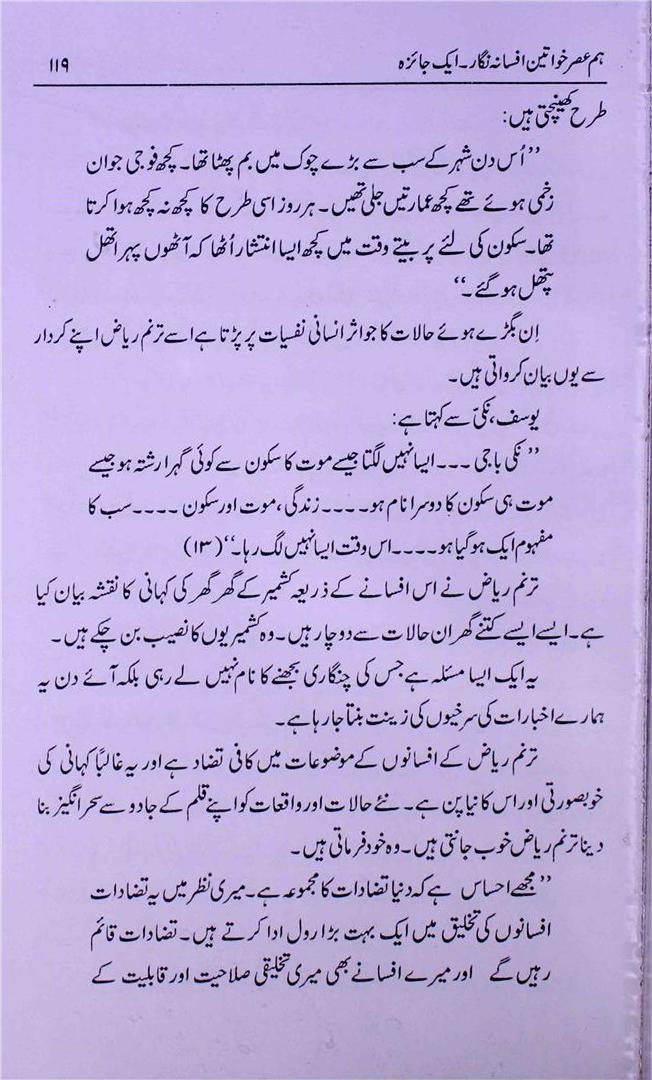 ہم عصر خواتین افسانہ نگار۔ ایک جائزہ ۱۱۹
طرح کھینچتی ہیں:
’’اُس دن شہر کے سب سے بڑے چوک میں بم پھٹا تھا۔ کچھ فوجی جوان
زخمی ہوئے تھے کچھ عمارتیں جلی تھیں۔ ہر روز اسی طرح کا کچھ نہ کچھ ہوا کرتا
تھا۔ سکون کی لئے پر بیتے وقت میں کچھ ایسا انتشار اُٹھا کہ آٹھوں پہر اتھل
پتھل ہو گئے۔‘‘
اِن بگڑے ہوئے حالات کا جو اثر انسانی نفسیات پر پڑتا ہے اسے ترنم ریاض اپنے کردار
سے یوں بیان کرواتی ہیں۔
یوسف، نکیّ سے کہتا ہے:
’’نکی باجی ۔۔۔ ایسا نہیں لگتا جیسے موت کا سکون سے کوئی گہرا رشتہ ہو جیسے
موت ہی سکون کا دوسرا نام ہو۔۔۔۔ زندگی، موت اور سکون ۔۔۔۔ سب کا
مفہوم ایک ہو گیا ہو۔۔۔۔ اس وقت ایسا نہیں لگ رہا۔‘‘ (۱۳)
ترنم ریاض نے اس افسانے کے ذریعہ کشمیر کے گھر گھر کی کہانی کا نقشہ بیان کیا
ہے۔ ایسے ایسے کتنے گھر ان حالات سے دوچار ہیں۔ وہ کشمیریوں کا نصیب بن چکے ہیں۔
یہ ایک ایسا مسئلہ ہے جس کی چنگاری بجھنے کا نام نہیں لے رہی بلکہ آئے دن یہ
ہمارے اخبارات کی سرخیوں کی زینت بنتا جا رہا ہے۔
ترنم ریاض کے افسانوں کے موضوعات میں کافی تضاد ہے اور یہ غالباً کہانی کی
خوبصورتی اور اس کا نیا پن ہے۔ نئے حالات اور واقعات کو اپنے قلم کے جادو سے سحر انگیز بنا
دینا ترنم ریاض خوب جانتی ہیں۔ وہ خود فرماتی ہیں۔
’’مجھے احساس ہے کہ دنیا تضادات کا مجموعہ ہے۔ میری نظر میں یہ تضادات
افسانوں کی تخلیق میں ایک بہت بڑا رول ادا کرتے ہیں۔ تضادات قائم
رہیں گے اور میرے افسانے بھی میری تخلیقی صلاحیت اور قابلیت کے